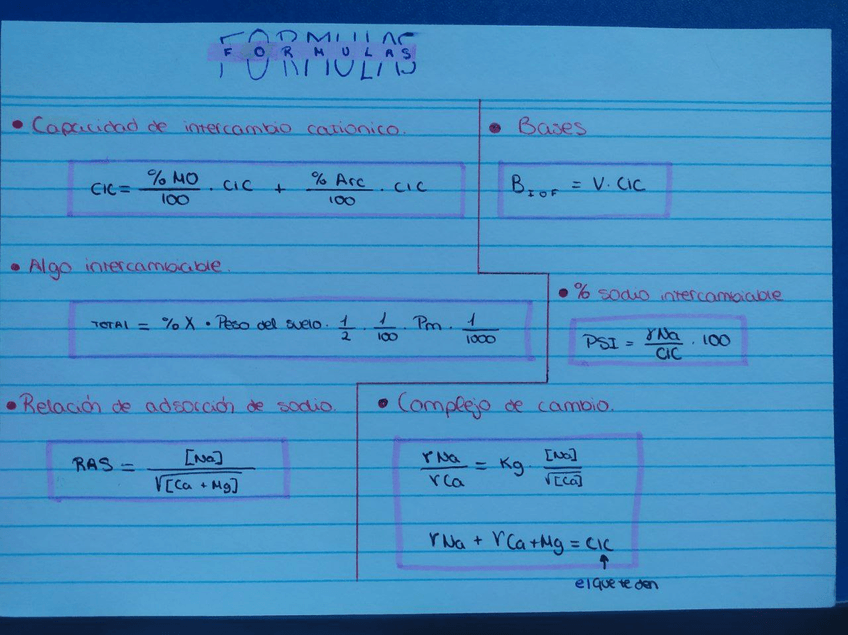 FORMULAS
FORMULAS
• Capacidad de intercambio cationico.
CIC = %MO/100 · CIC + % Arc/100 · CIC
• Bases
B I O F = V · CIC
• Algo intercambiable.
TOTAL = % X · Peso del suelo · 1/2 · 1/100 · Pm · 1/1000
• % sodio intercambiable
PSI = rNa/CIC · 100
• Relación de adsorción de sodio.
RAS = [Na]/√[Ca + Mg]
• Complejo de cambio.
rNa/rCa = Kg · [Na]/√[Ca]
rNa + rCa+Mg = CIC
↑
el que te den